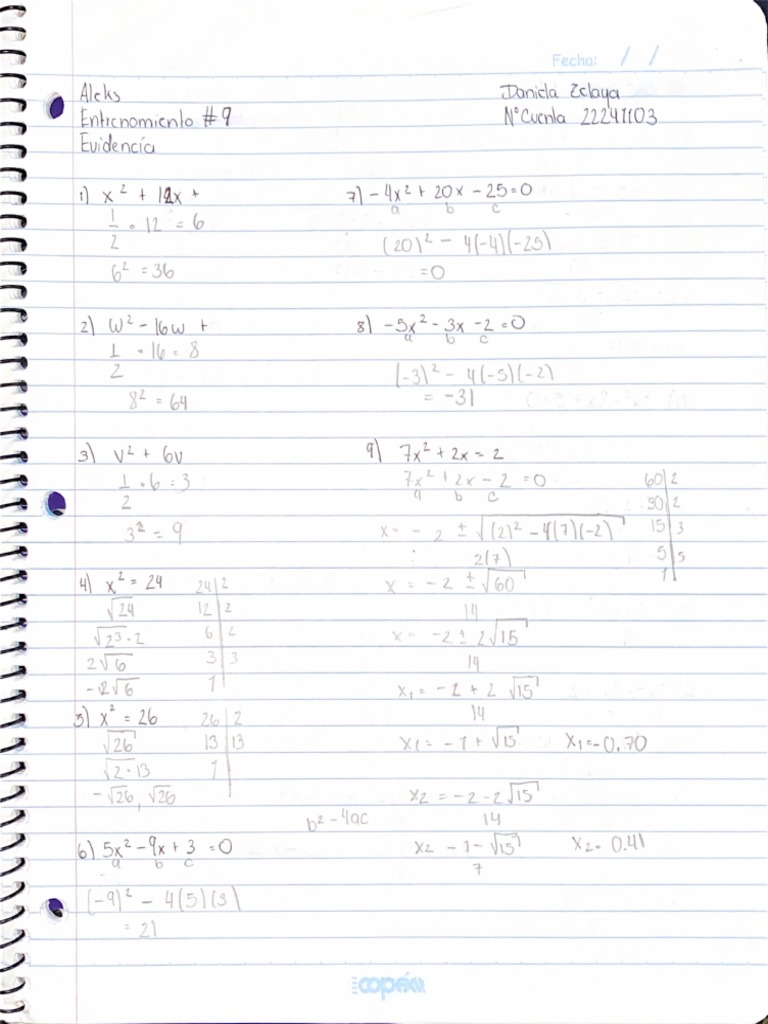 Fecha: / /
Aleks
Entrenamiento #9
Evidencia
Daniela Zelaya
N° Cuenta 22241103
1) x² + 12x +
1/2 • 12 = 6
6² = 36
2) w² - 16w +
1/2 • 16 = 8
8² = 64
3) v² + 6v
1/2 • 6 = 3
3² = 9
4) x² = 24
24 | 2
√24
12 | 2
√2³·2
6 | 2
2√6
3 | 3
-2√6
1
5) x² = 26
26 | 2
√26
13 | 13
√2·13
1
-√26, √26
b² - 4ac
6) 5x² - 9x + 3 = 0
a b c
(-9)² - 4(5)(3)
= 21
7) -4x² + 20x - 25 = 0
a b c
(20)² - 4(-4)(-25)
= 0
8) -5x² - 3x - 2 = 0
a b c
(-3)² - 4(-5)(-2)
= -31
9) 7x² + 2x = 2
7x² + 2x - 2 = 0
a b c
60 | 2
30 | 2
15 | 3
5 | 5
1
x = - 2 ± √(2)² - 4(7)(-2)
2(7)
x = -2 ± √60
14
x = -2 ± 2√15
14
x₁ = -2 + 2√15
14
x₁ = -1 + √15 x₁ = -0.70
x₂ = -2 - 2√15
14
x₂ -1 - √15 x₂ = 0.41
7
copán